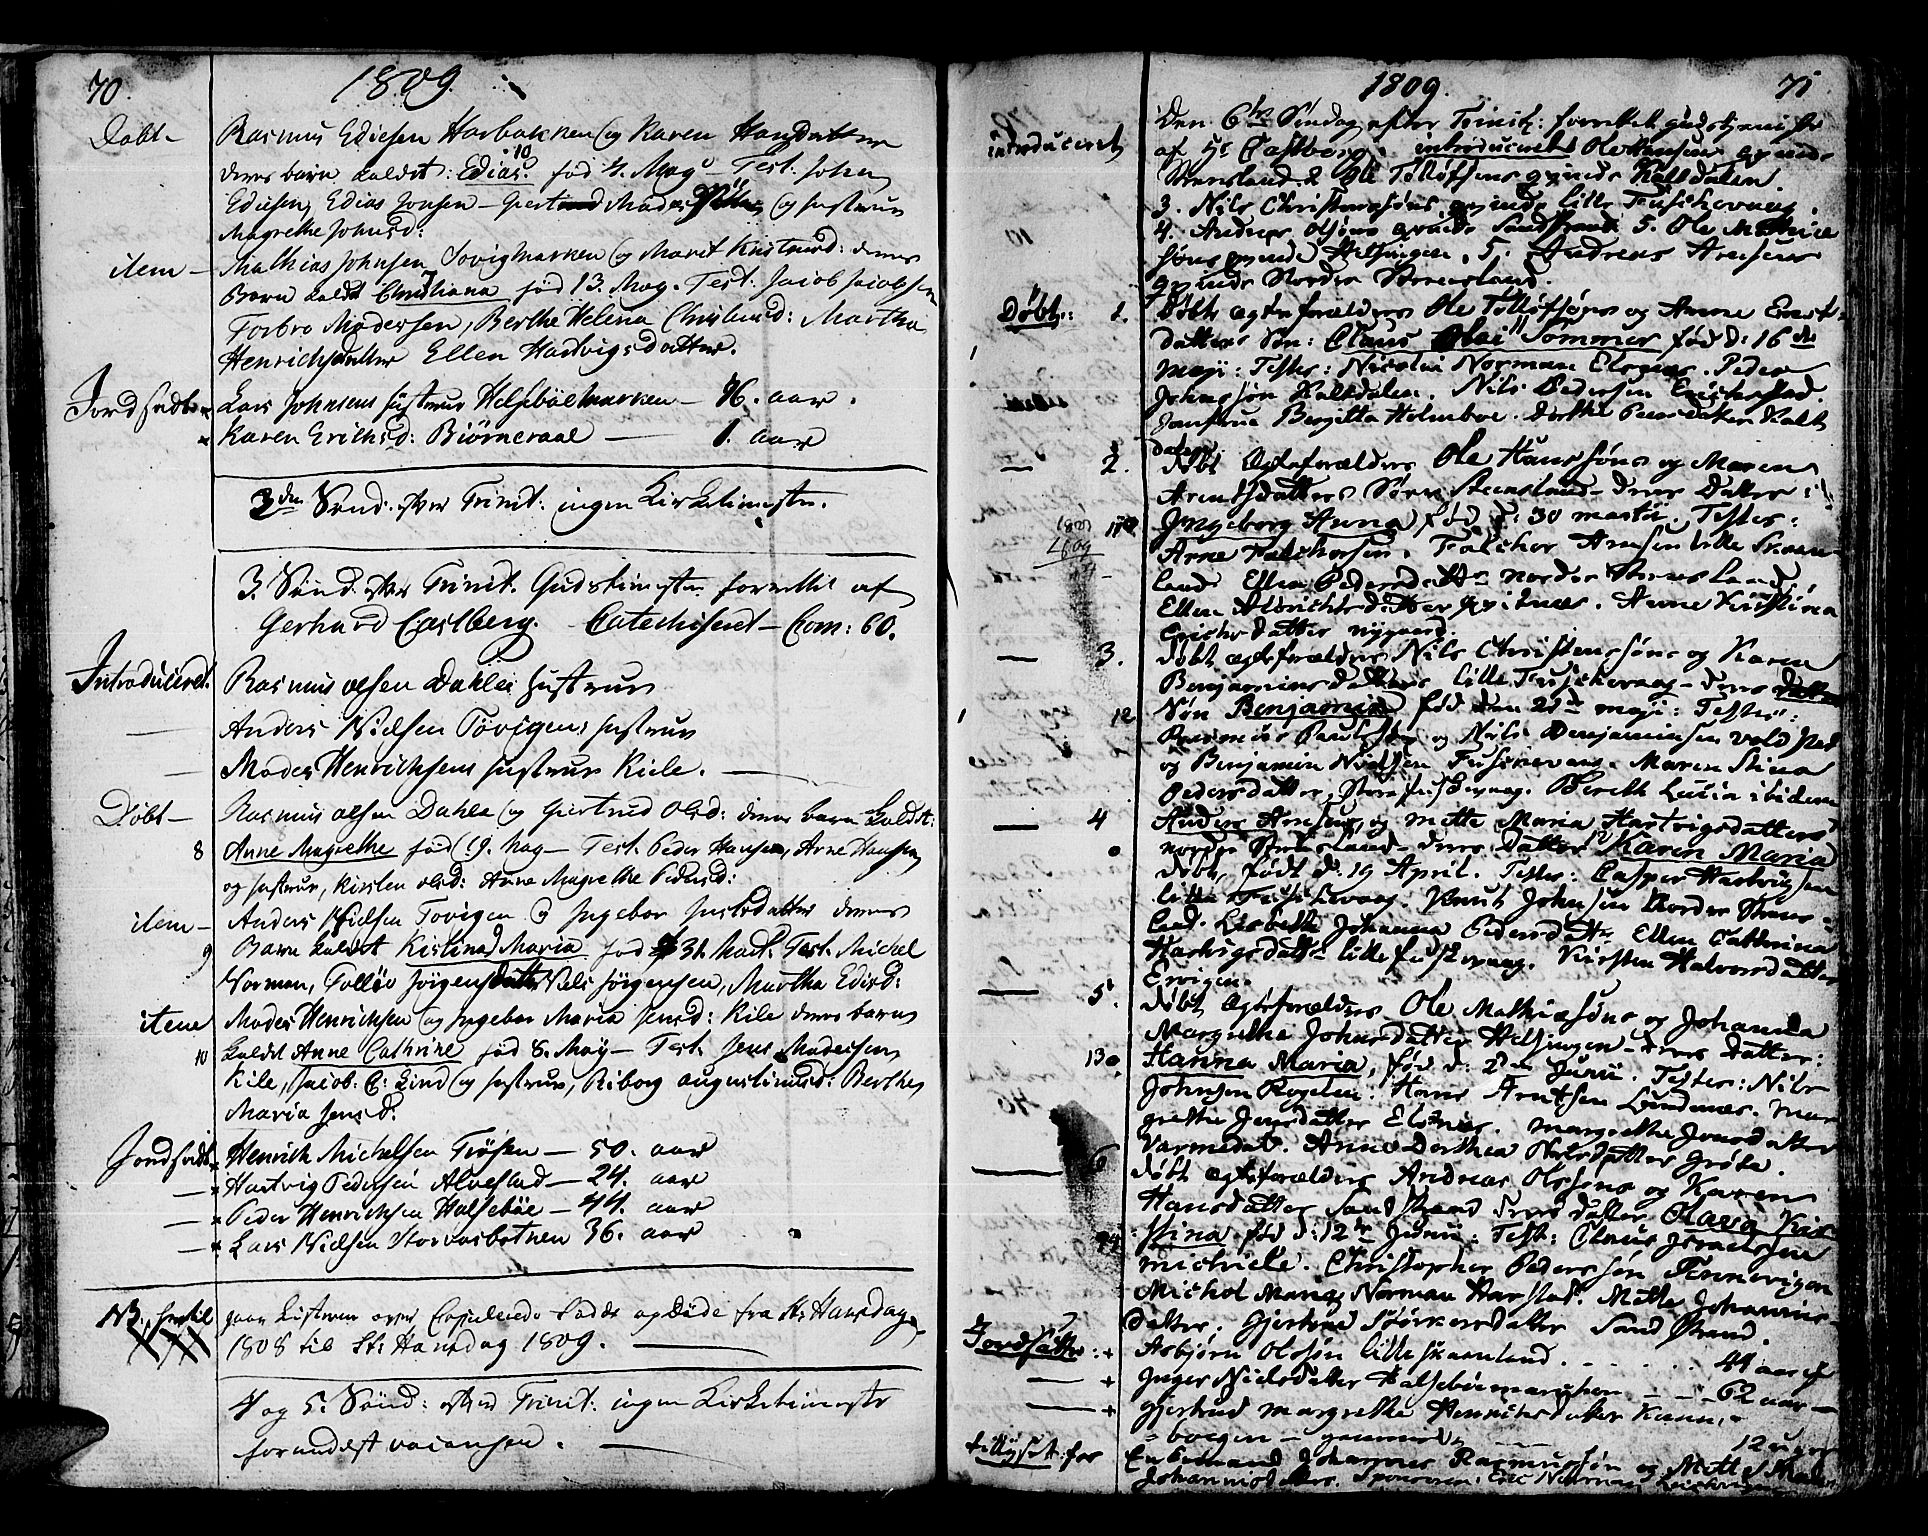 70.
1809.
Døbt – Rasmus Ediesen Harbakken og Karen Hansdatter
deres barn kaldet: Edias. fød 4. May – Test. John
10
Ediesen, Edias Jonsen – og hustrue
Magrethe Johnsd:
item – Mathias Johnsen og Marit Knutsd: deres
Barn kaldt Christiana fød 13. May. Test. Jacob Jacobsen
Torbro Madssen, Berthe Helena Christensd: Martha
Henrichsdatter Ellen Hartvigsdatter.
Jordfæstet Lars Johnsens hustrue Helsebøemarken – 76. aar.
Karen Erichsd: Biørneraae — 1. aar
3die Sønd: efter Trinit: ingen Kirketieneste.
3. Sønd. efter Trinit. Gudstieneste forrettet af
Gerhard Castberg. Catechiseret – Com: 60.
Introduceret. Rasmus Olsen Dahle hustrue
— Anders Nielsen Tøvigens hustrue
— Mades Henrichsens hustrue Kiile.
Døbt – Rasmus Olsen Dahle og Giertrud Olsd: deres barn kaldt:
8 Anne Magrethe fød 19. May – Test. Peder Hansen, Arne Hansen
og hustrue, Kirsten Olsd: Anne Magrethe Pedersd:
item – Anders Nielsen Tovigen og Ingebor deres
9 Barn kaldt Kistina Maria fød 31. Mart. Test. Michel
Norman, Tolløv Jørgens Niels Jørgensen, Martha Edisd:
item Mades Henrichsen og Ingebor Maria Jensd: Kile deres barn
10 kaldt Anne Cathrine fød 8. May – Test. Jens Madesen
Kile, Jacob: C: Lind og hustrue, Riborg Augustinusd: Berthe
Maria Jensd:
Jordfæstet Henrich Michelsen Trøsen – 50. aar
— Hartvig Pedersen Alvestad – 24. aar
— Peder Henrichsen Halsebøe – 44. aar
— Lars Nielsen Storvasbotnen 36. aar
NB. hertil gaar Listerne over Copulerede Fødde og Døde fra St: Hansdag
1808 til St: Hansdag 1809.
4 og 5. Sønd: efter Trinit: ingen Kirketieneste
formedelst vacansen.
1809.
71
introduceret Den 6te Søndag efter Trinit: forrettet gudstieniste
af Hr Castberg. introduceret Ole Hansens qvinde
Steensland. 2 Ole Tolløfsens qvinde Kaltdalen.
3. Nils Christensøns qvinde lille Fuskevaag.
4. Andreas Olsøns qvinde Sandstrand. 5. Ole Mathies
søns qvinde Helsingen. 5. Andreas Arnsens
qvinde Nordre Steensland.
Døbt: 1. Døbt egteforældres Ole Tolløfsøns og Anne Ernst-
datters Søn: Claus Olai Sommer fød d: 16de
11
Maji: Testes: Nicolai Norman Elgnes. Peder
Johnssøn Kaltdalen. Nils Pedersen Erichstad.
Jomfrue Birgitta Holmboe. Dorthe Pedersdatter Kalt
dalen
— 2. døbt Egteforældres Ole Hanssøns og Maren
Arentsdatters Søre Steensland – deres Datter:
Ingeborg Anna fød d: 30 martii. Testes:
Arne Falchorsen. Falchor Arnesen lille Skaan-
land Ellen Pedersdatter nordre Steensland,
Ellen Albrichtsdatter Qvitnes. Anne Kirstina
Erichsdatter nygaard.
— 3. døbt egteforældres Nils Christenssøns og Karen
Benjaminsdatters lille Fuskevaag – deres datter
12 Søn Benjamin fød den 21de maji: Testes:
Rasmus og Nils Benjaminsen
og Benjamin Nielsen Fuskevaag. Maren Stina
Pedersdatter, Store fuskevaag. Bereth Lucia ibidem
— 4 Anders Arnsens og Mette Maria Hartvigsdatters
nordre Steensland – deres datter Karen Maria
døbt, født d: 19 April. Testes: Casper Hartvigsen
lille Fuskevaag. Knut Johnsen Nordre Steens-
land. Lisbeth Johanna Pedersdtr Ellen Cathrina
Hartvigsdatter lille fuskevaag. Kirsten Halvorsdatter
Ervigen.
— 5. døbt Egteforældres Ole Mathiessøns og Johanna
Margrethe Johnsdatter Helsingen – deres datter:
13 Hanna Maria, fød d: 2den Junii. Testes: Nils
Johnsen Røgden. Hans Arntsen Lundenæs. Mar
grethe Jensdatter Elgnæs. Margrethe Jonsdatter
Varmedal. Anne Dorthea Nilsdatter Grøte.
— 6 døbt egteforældres Andreas Olssøns og Karen
Hansdatter Sandstrand deres datter Olava Kir-
stina fød d: 12te Junii: Test: Claus Israelssen
michvile. Christopher Pederssøn Tennevigen
Michol Maria Norman Harstad. Mette Johannes-
datter. Gjertine Størkersdatter Sandstrand.
Jordfæstet: + Asbjørn Olssøn lille skaanland. . . . 44 aar
— + Inger Nielsdatter Halsebøemarchen – 62 aar –
— + Gjertrud Margrethe Henrichsdatter Kaan-
= bogen – 12 uger
tillyset: for Enkemand Johannes Rasmussøn og Mette
Johannesdatter. Sponsores: Eric